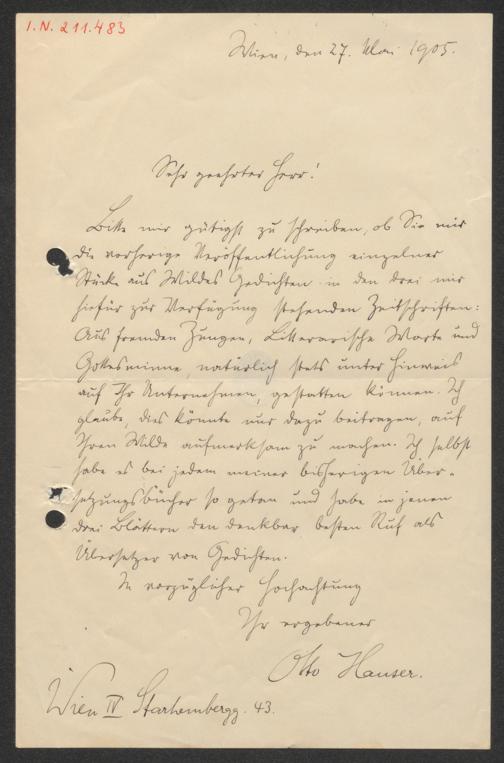 I.N. 211.483
Wien, den 27. Mai 1905.
Sehr geehrter Herr!
Bitte mir gütigst zu schreiben, ob Sie mir
die vorherige Veröffentlichung einzelner
Stücke aus Wildes Gedichten in den drei mir
hiefür zur Verfügung stehenden Zeitschriften:
Aus fremden Zungen, Litterarische Warte und
Gottesminne, natürlich stets unter Hinweis
auf Ihr Unternehmen, gestatten können. Ich
glaube, dies könnte nur dazu beitragen, auf
Ihren Wilde aufmerksam zu machen. Ich selbst
habe es bei jedem meiner bisherigen Über-
setzungsbücher so getan und habe in jenen
drei Blättern den denkbar besten Ruf als
Übersetzer von Gedichten.
In vorzüglicher Hochachtung
Ihr ergebener
Otto Hauser.
Wien IV Starhembergg. 43.